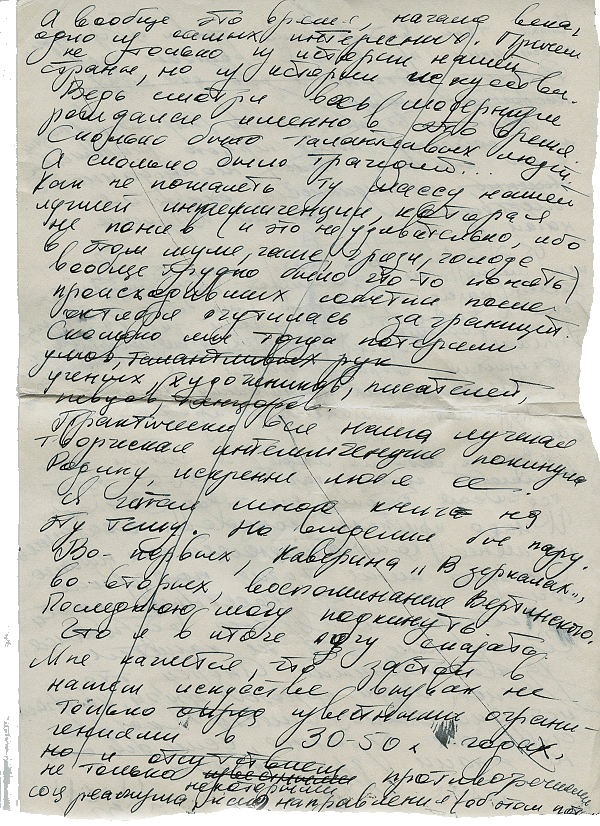 А вообще это время, начала века,
одно из самых интересных. Причем
не только из истории нашей
страны, но из истории искусства.
Ведь смотри весь модернизм
рождался именно в это время.
Сколько было талантливых людей
А сколько было трагедий...
Как не пожалеть ту массу нашей
лучшей интеллигенции, которая
не поняв (и это неудивительно, ибо
в этом шуме, гаме, грязи, голоде
вообще трудно было что-то понять)
происходивших событий после
октября очутилась за границей.
Сколько мы тогда потеряли
умов, талантливых рук
ученых, художников, писателей,
певцов, танцоров.
Практически вся наша лучшая
творческая интеллигенция покинула
Родину, искренне любя ее.
Я читал много книг на
эту тему. Но выделил бы пару.
Во-первых, Каверина "В зеркалах",
во вторых, воспоминания Вертинского.
Последнюю могу подкинуть.
Что я в итоге могу сказать.
Мне кажется, что застой в
нашем искусстве вызван не
только известными ограни-
чениями в 30-50х годах,
но и отсутствием
не только некоторыми противотечения
соц реализма, направления (об этом